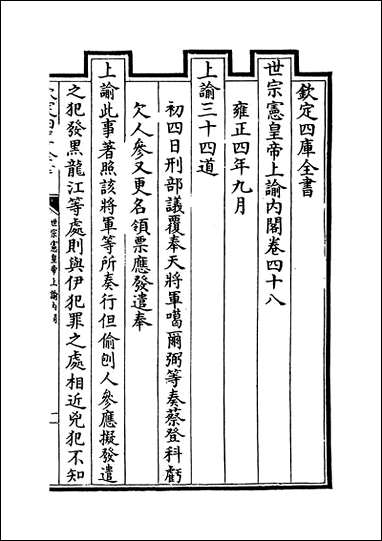 欽定四庫全書
世宗憲皇帝上諭內閣卷四十八
雍正四年九月
上諭三十四道
初四日刑部議覆奉天將軍噶爾弼等奏蔡登科虧
欠人參又更名領票應發遣奉
上諭此事著照該將軍等所奏行但偷刨人參應擬發遣
之犯發黑龍江等處則與伊犯罪之處相近兇犯不知
世宗憲皇帝上諭內閣